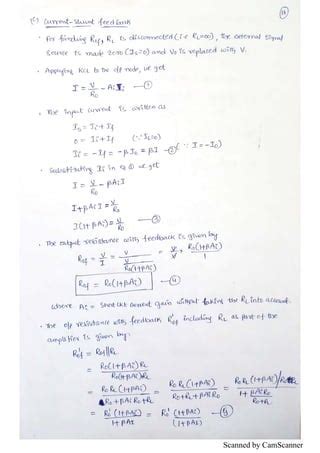 (*) Current-shunt feedback
• For finding Rof, RL is disconnected (i.e RL=∞), the external signal
source is made zero (Is=0) and Vo is replaced with V.
• Applying KCL to the o/p node, we get
I = V/Ro - AiIi —①
• The input current is written as
Is = Ii + If
0 = Ii + If (∵ Is=0)
Ii = -If = -βIo = βI —② (∵ I = -Io)
• Substituting Ii in eq ① we get
I = V/Ro - βAiI
I+βAiI = V/Ro
I(1+βAi) = V/Ro —③
• The output resistance with feedback is given by
Rof = V/I = V/(V/Ro(1+βAi)) = V/V × Ro(1+βAi)/1
Rof = Ro(1+βAi) —④
where Ai = Short ckt current gain without taking the RL into account.
• The o/p resistance with feedback R'of including RL as part of the
amplifier is given by:
R'of = Rof||RL
= Ro(1+βAi)RL/Ro(1+βAi)+RL
= RoRL(1+βAi)/RL+βAiRo+Ro = RoRL(1+βAi)/Ro+RL+βAiRo = RoRL(1+βAi)/Ro+RL/1+βAiRo/Ro+RL
= R'o(1+βAi)/1+βAI = R'o(1+βAi)/(1+βAI) —⑤
Scanned by CamScanner